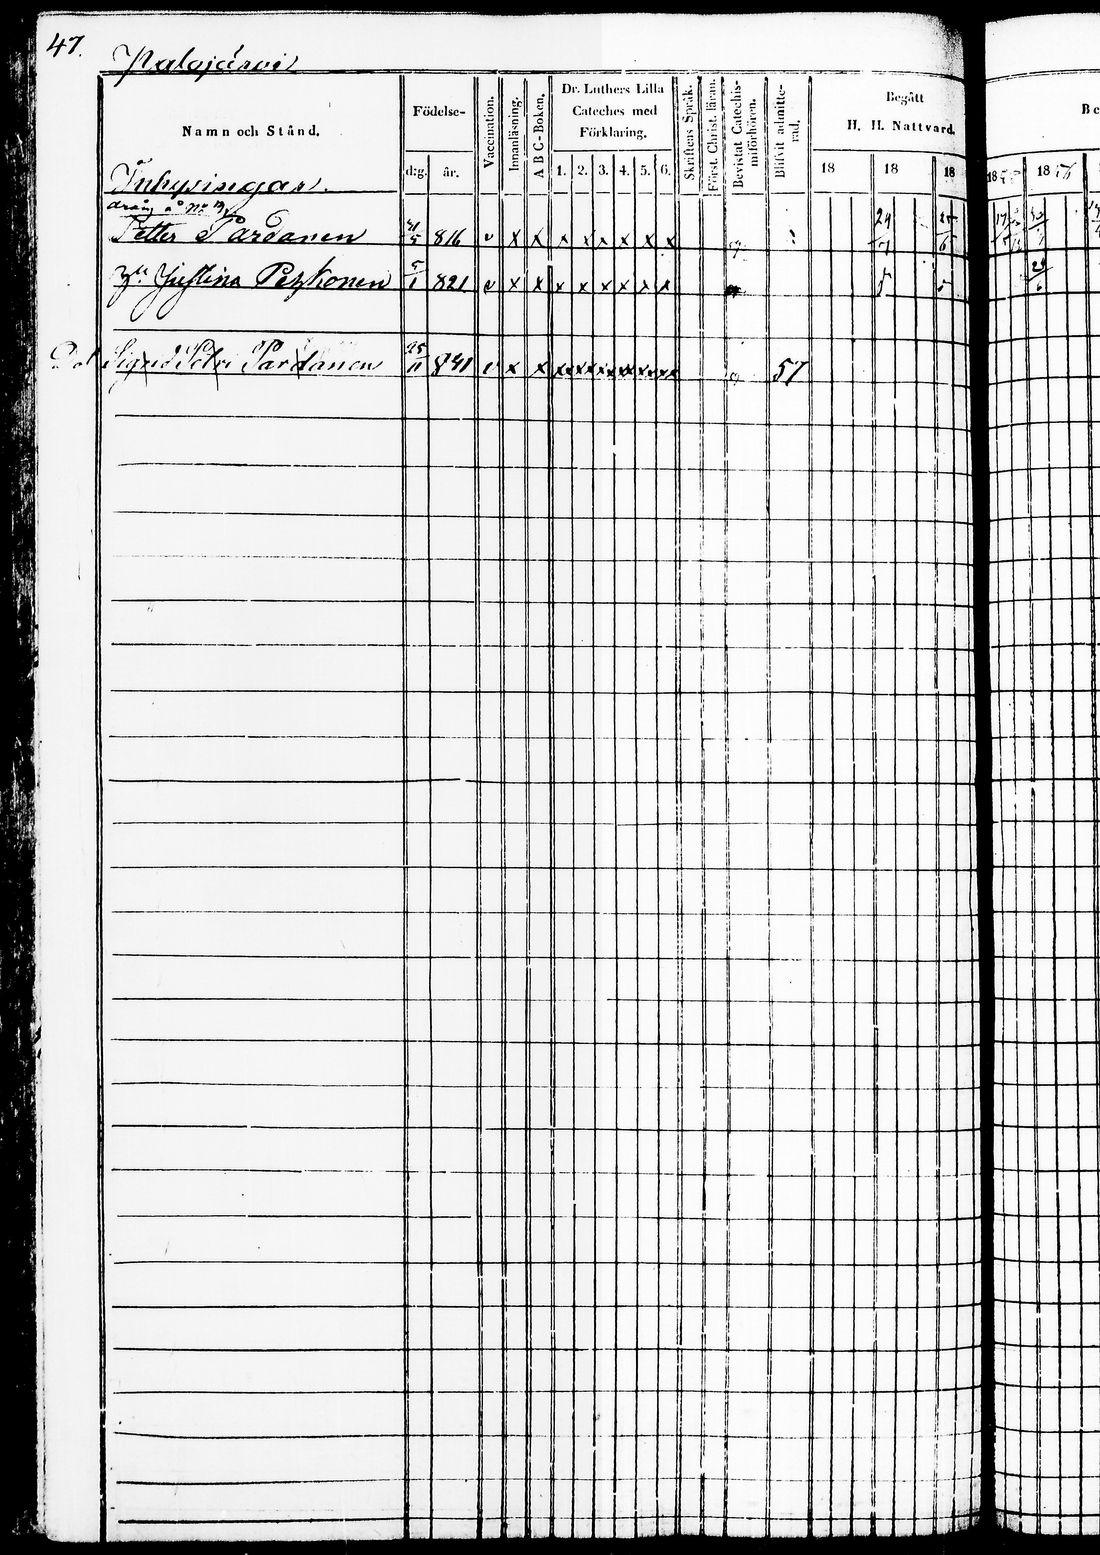 47.
Palojärvi
Namn och Stånd.
Födelse-
d:g.
år.
Vaccination.
Innanläsning.
A B C-Boken.
Dr. Luthers Lilla
Cateches med
Förklaring.
1. 2. 3. 4. 5. 6.
Skriftens Språk.
Först. Christ. läran.
Bevistat Catechis-
miförhören.
Blifvit admitte-
rad.
Begått
H. H. Nattvard.
18 18 18
18 18 56
Be
Inhysingar.
dräng å No
Petter Pardanen 816 v x x x x x x x x
29/7
Hu Justina Pezkonen 5/1 821 v x x x x x x x x
29/6
Dot Sigrid Petri Pardanen 25/11 841 v x x 57